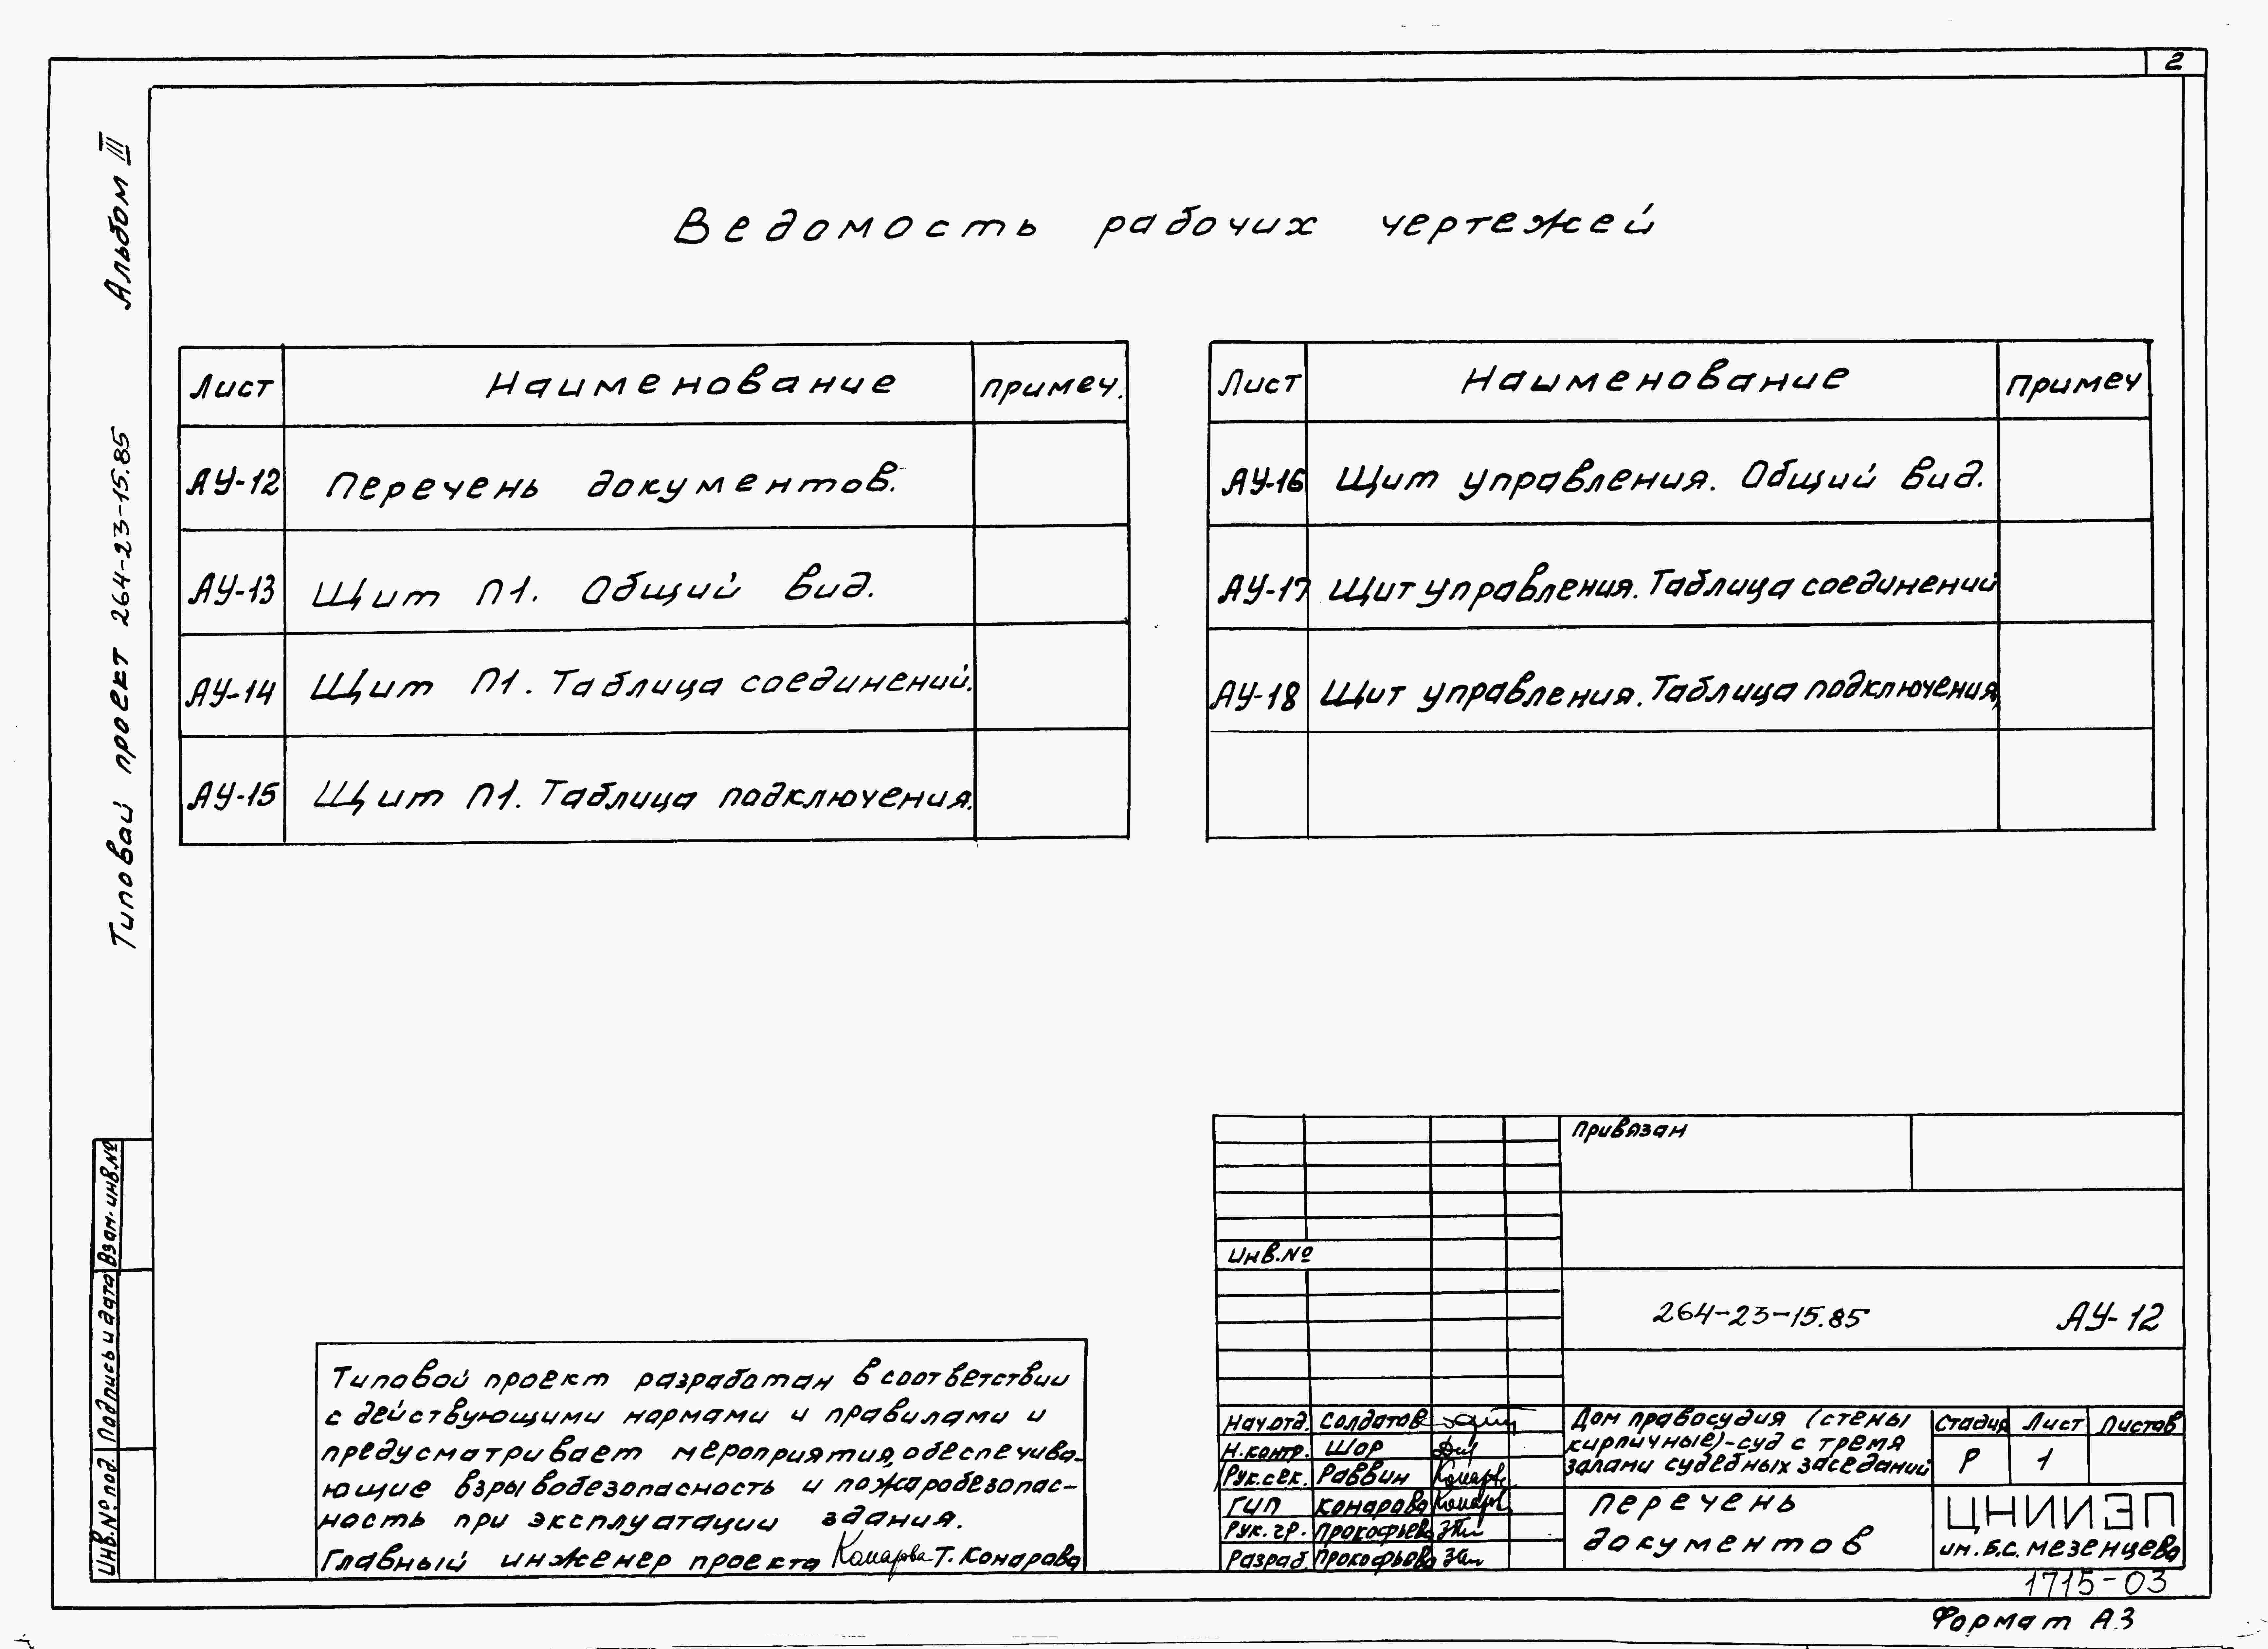 2
Альбом III
Типовой проект 264-23-15.85
Ведомость рабочих чертежей
Лист Наименование примеч.
АУ-12 Перечень документов.
АУ-13 Щит П1. Общий вид.
АУ-14 Щит П1. Таблица соединений.
АУ-15 Щит П1. Таблица подключения.
Лист Наименование Примеч
АУ-16 Щит управления. Общий вид.
АУ-17 Щит управления. Таблица соединений
АУ-18 Щит управления. Таблица подключения,
Взам. инв.№
Подпись и дата
Инв.№ под.
Типовой проект разработан в соответствии
с действующими нормами и правилами и
предусматривает мероприятия, обеспечива-
ющие взрывобезопасность и пожаробезопас-
ность при эксплуатации здания.
Главный инженер проекта Конарова Т. Конарова
Привязан
Инв.№
264-23-15.85 АУ-12
Нач.отд. Солдатов
Н.контр. Шор
Рук.сек. Раввин
ГИП Конарова
Рук. гр. Прокофьева
Разраб. Прокофьева
Дом правосудия (стены
кирпичные)-суд с тремя
залами судебных заседаний
Стадия Лист Листов
Р 1
перечень
документов
ЦНИИЭП
им. Б.С. Мезенцева
1715-03
Формат А3